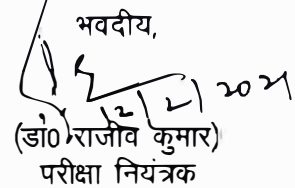 भवदीय,
12/2/2021
(डॉ0 राजीव कुमार)
परीक्षा नियंत्रक